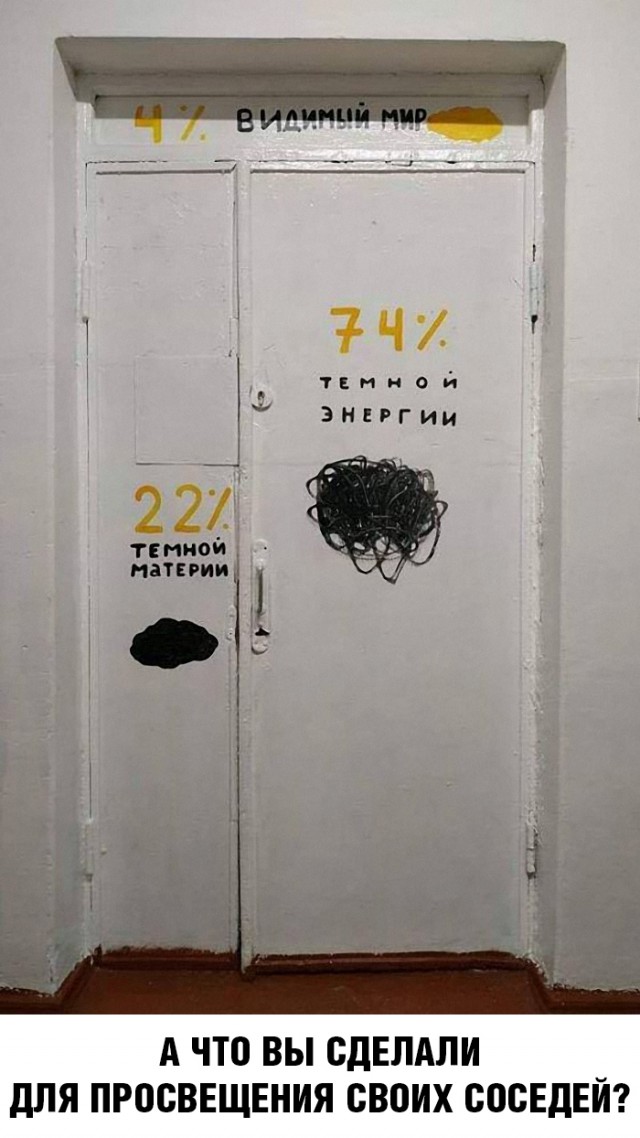 4% ВИДИМЫЙ МИР
74%
ТЕМНОЙ
ЭНЕРГИИ
22%
ТЕМНОЙ
МАТЕРИИ
А ЧТО ВЫ СДЕЛАЛИ
ДЛЯ ПРОСВЕЩЕНИЯ СВОИХ СОСЕДЕЙ?